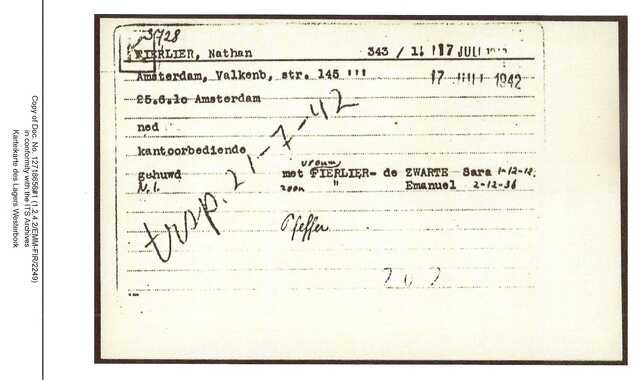 3728
FIERLIER, Nathan 343 / 1. 17 JULI
Amsterdam, Valkenb, str. 145 ''' 17 JULI 1942
25.6.10 Amsterdam
ned
kantoorbediende
vrouw
gehuwd met FIERLIER- de ZWARTE Sara 1-12-12.
N.I. zoon " Emanuel 2-12-36
trsp. 21-7-42
Pfeffer
Copy of Doc. No. 12718656#1 (1.2.4.2/EMM-FIR/2249)
in conformity with the ITS Archives
Karteikarte des Lagers Westerbork